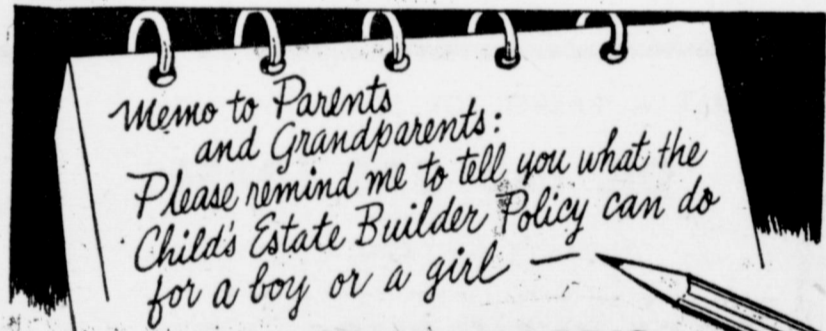 Memo to Parents
and Grandparents:
Please remind me to tell you what the
Child's Estate Builder Policy can do
for a boy or a girl —